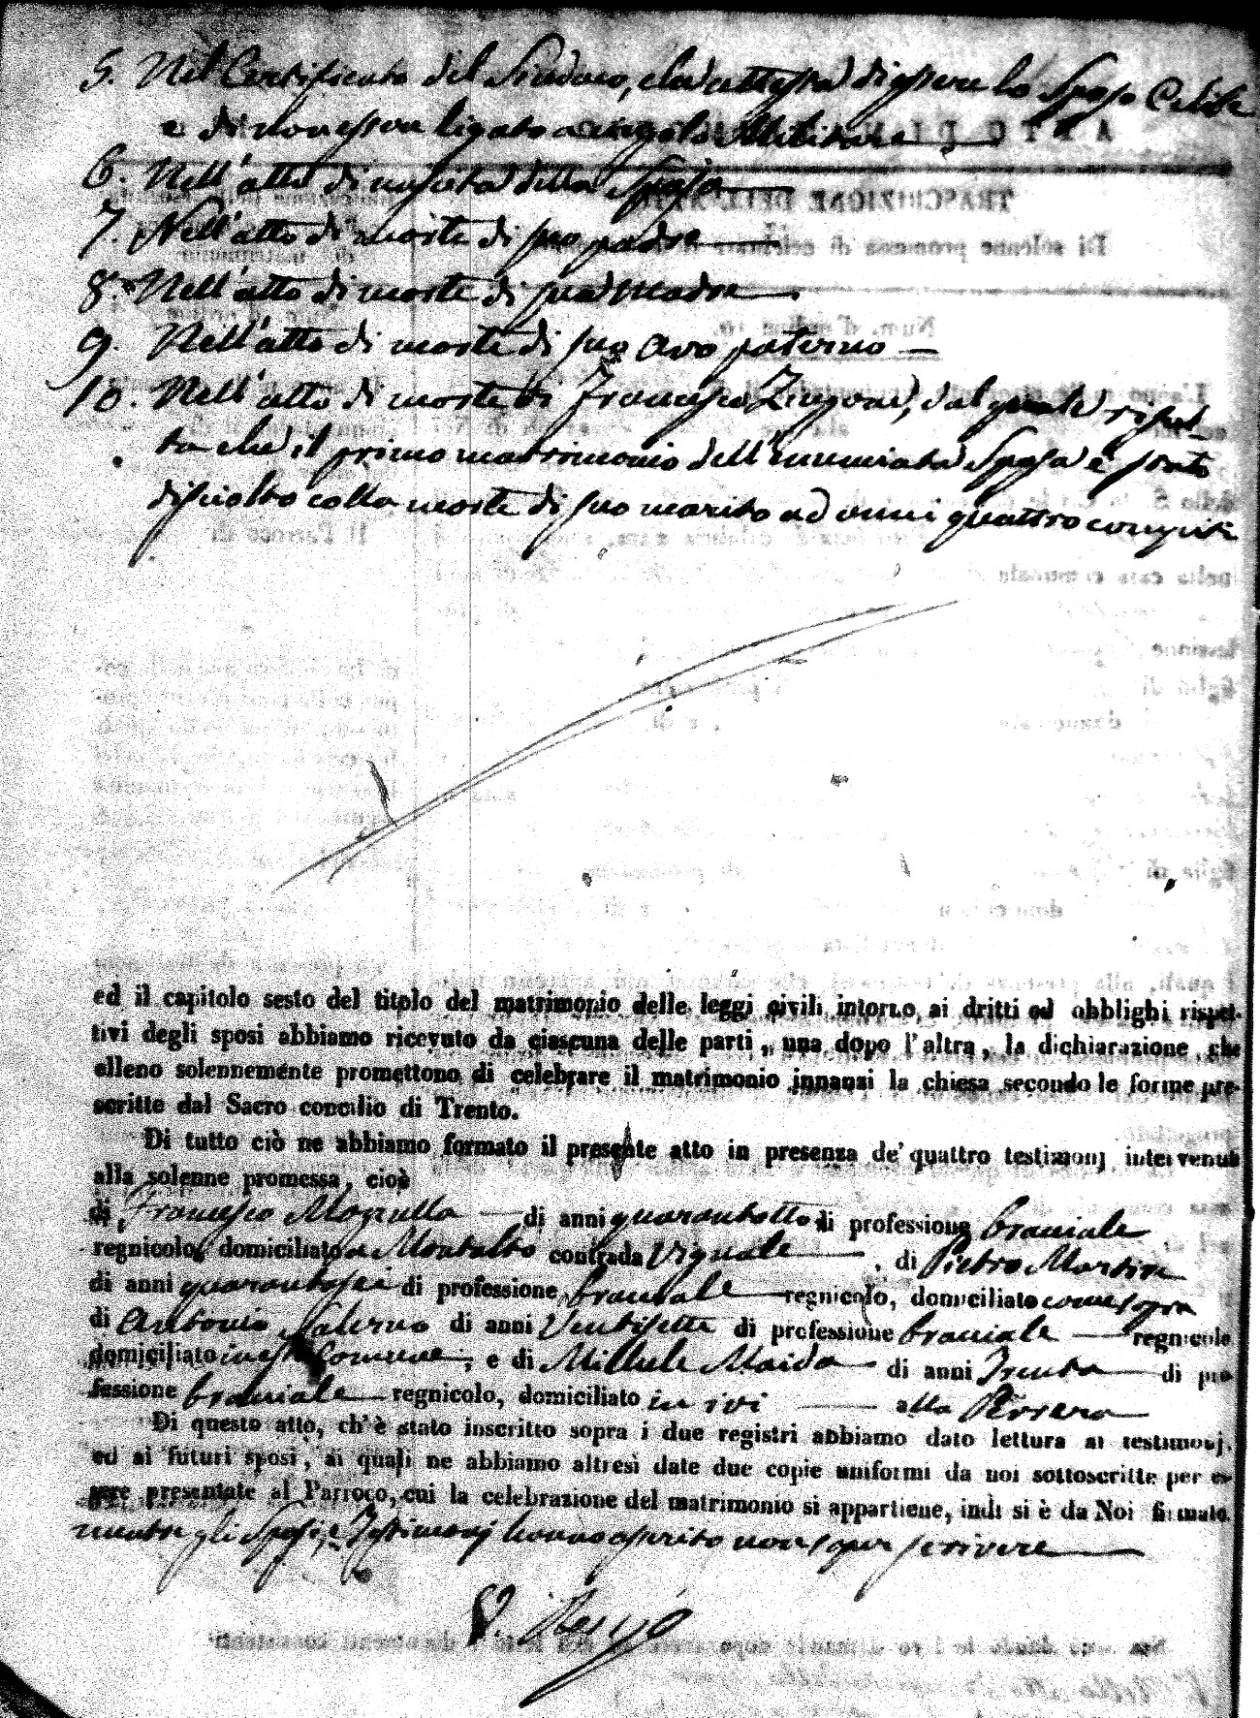 5. Nel Certificato del Sindaco, che attesta di essere lo Sposo Celibe
e di non essere ligato a vingolo Militare
6. Nell'atto di nascita della Sposa
7. Nell'atto di morte di suo padre
8. Nell'atto di morte di sua Madre
9. Nell'atto di morte di suo avo paterno
10. Nell'atto di morte di Francesco dal quale risul-
ta che il primo matrimonio dell'enunciata Sposa è stato
disciolto colla morte di suo marito ad anni quattro compiti
ed il capitolo sesto del titolo del matrimonio delle leggi civili intorno ai dritti ed obblighi rispet-
tivi degli sposi abbiamo ricevuto da ciascuna delle parti, una dopo l'altra, la dichiarazione, che
elleno solennemente promettono di celebrare il matrimonio innanzi la chiesa secondo le forme pre-
scritte dal Sacro concilio di Trento.
Di tutto ciò ne abbiamo formato il presente atto in presenza de' quattro testimonj intervenuti
alla solenne promessa, cioè
di Francesco di anni quarantotto di professione bracciale
regnicolo, domiciliato a Montalto contrada Vignale, di Pietro
di anni quarantasei di professione bracciale regnicolo, domiciliato come sopra
di Antonio Salerno di anni Ventisette di professione bracciale regnicolo
domiciliato in esta Comune, e di Michele Maida di anni Trenta di pro-
fessione bracciale regnicolo, domiciliato in ivi alla
Di questo atto, ch'è stato inscritto sopra i due registri abbiamo dato lettura ai testimonj,
ed ai futuri sposi, ai quali ne abbiamo altresì date due copie uniformi da noi sottoscritte per es-
sere presentate al Parroco, cui la celebrazione del matrimonio si appartiene, indi si è da Noi firmato
mentre gli Sposi, e Testimonj hanno asserito non saper scrivere